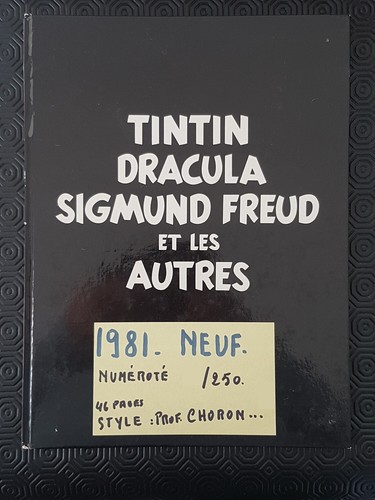 TINTIN
DRACULA
SIGMUND FREUD
ET LES
AUTRES
1981. NEUF.
NUMÉROTÉ /250.
46 PAGES
STYLE : PROF. CHORON...